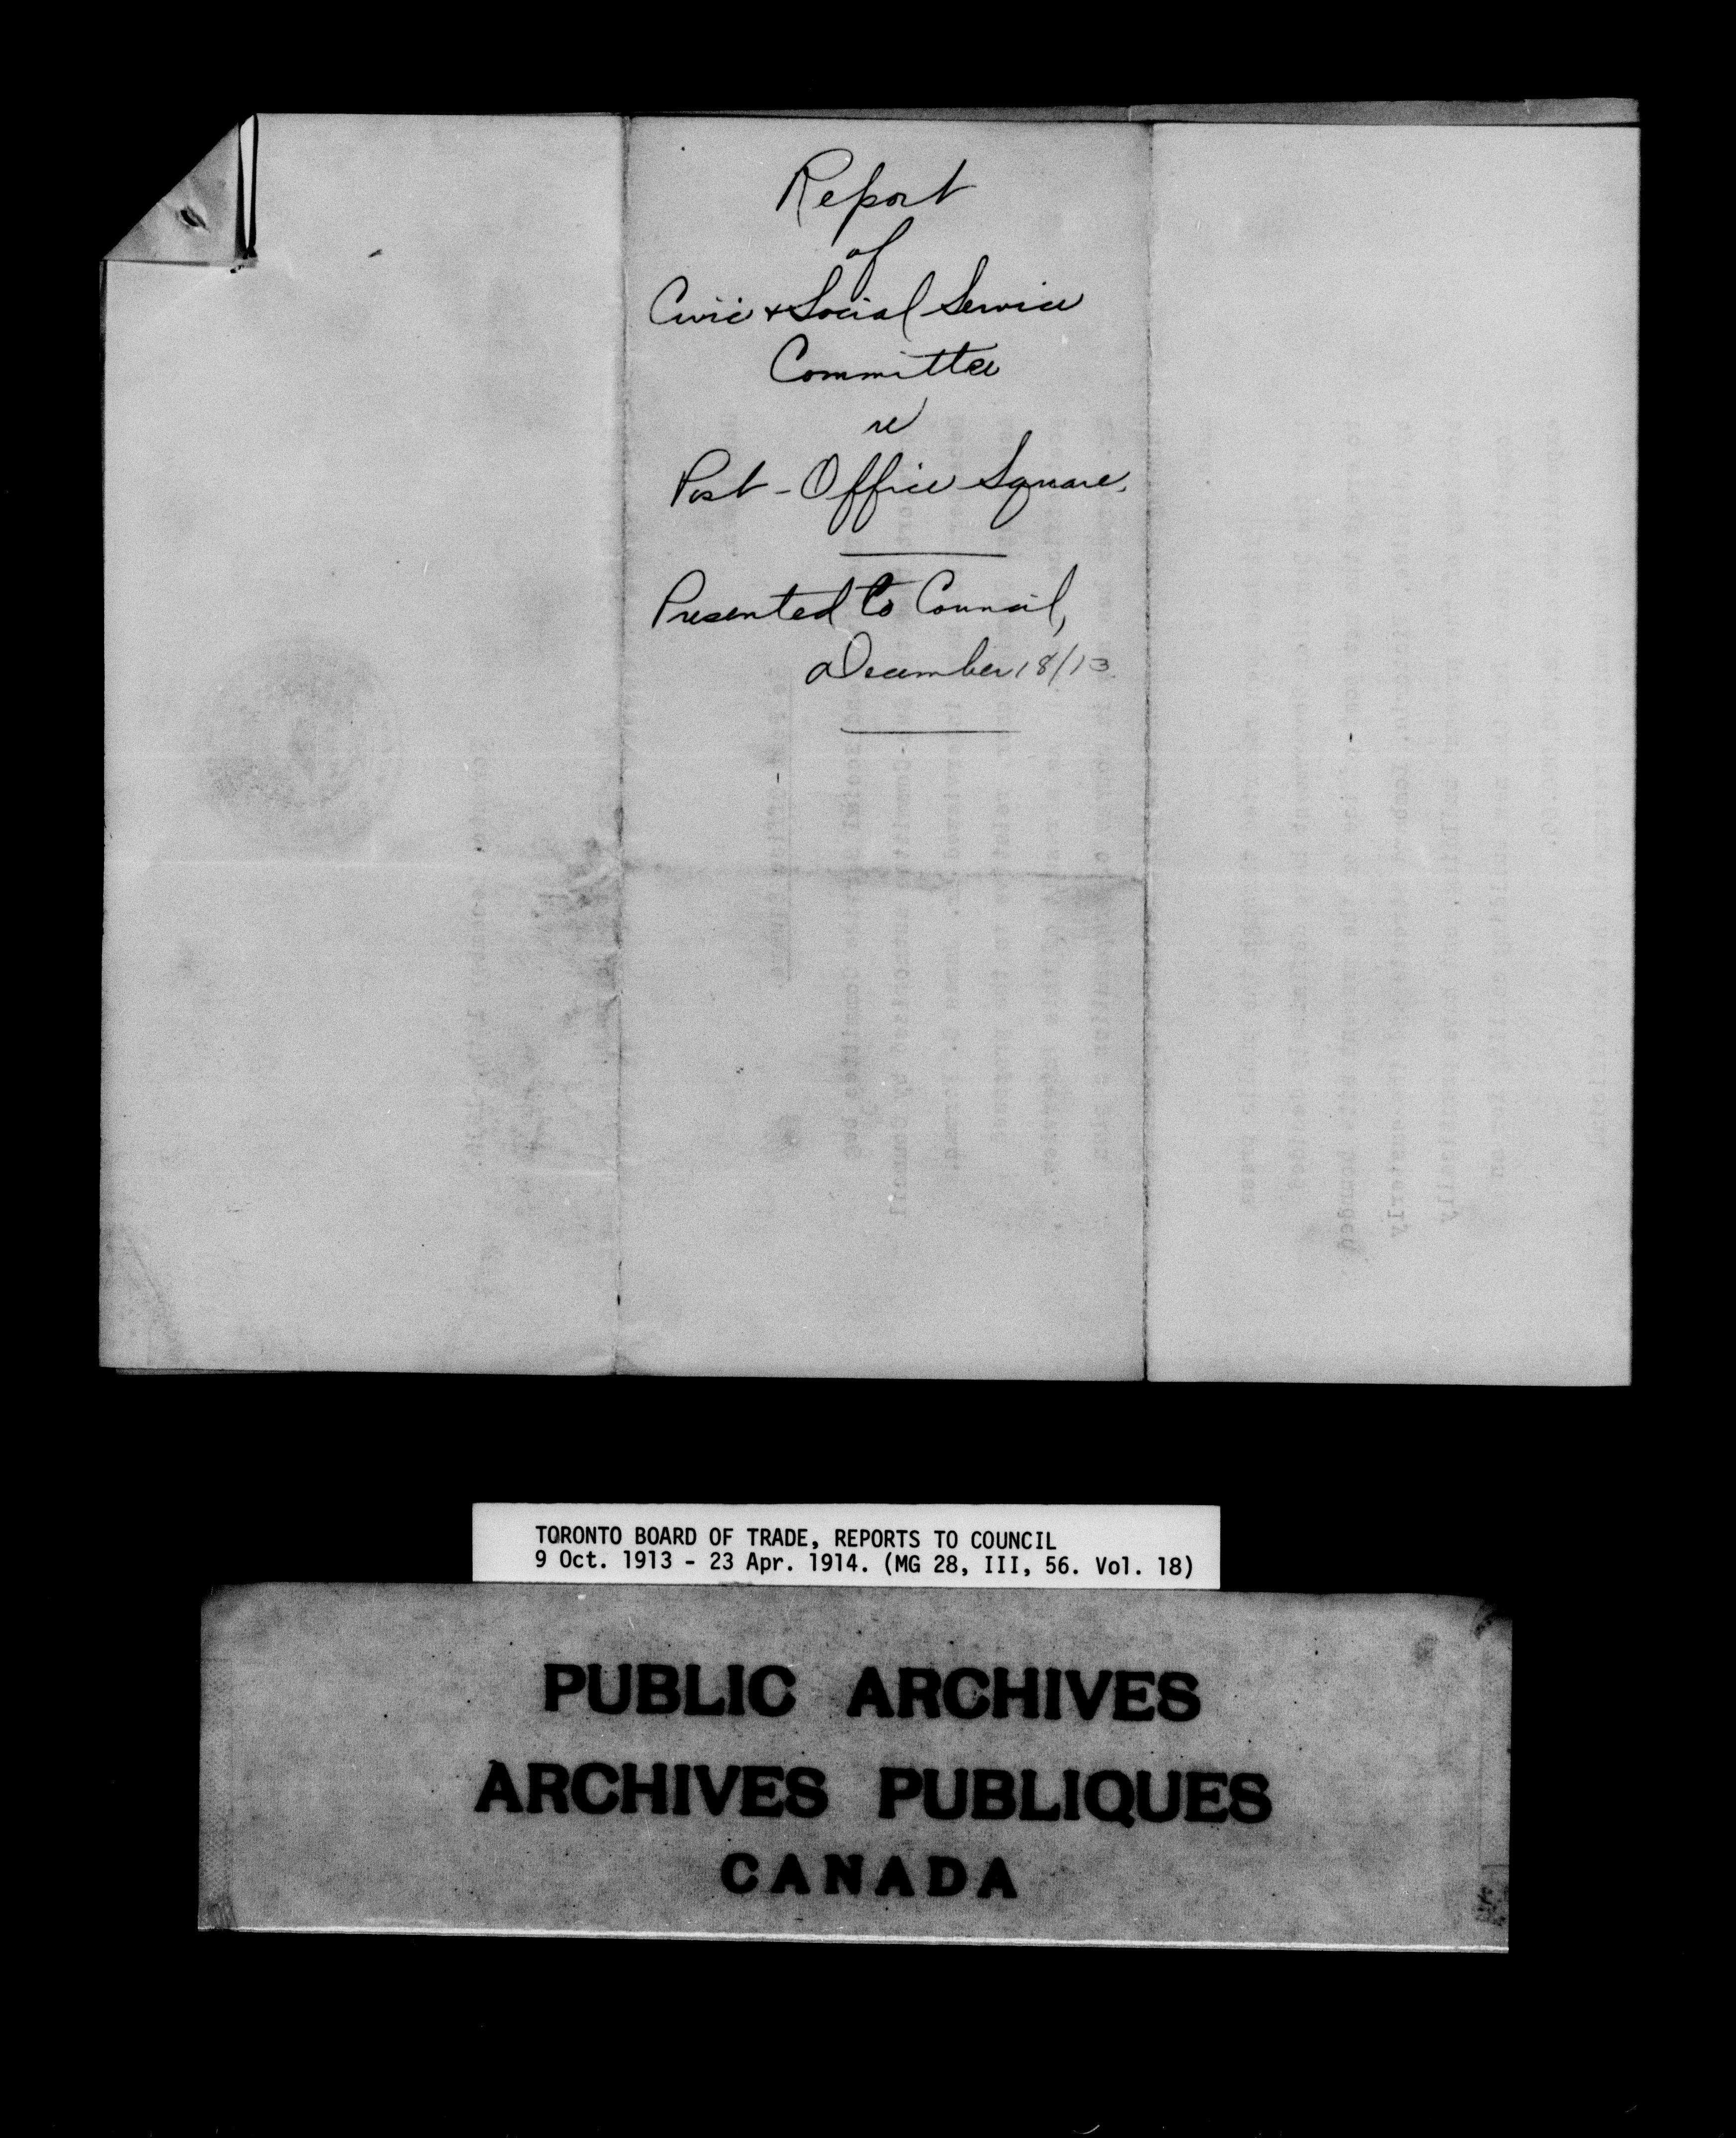 Report
of
Civic & Social Service
Committee
re
Post-Office Square.
Presented to Council,
December 18/13.
TORONTO BOARD OF TRADE, REPORTS TO COUNCIL
9 Oct. 1913 - 23 Apr. 1914. (MG 28, III, 56. Vol. 18)
PUBLIC ARCHIVES
ARCHIVES PUBLIQUES
CANADA